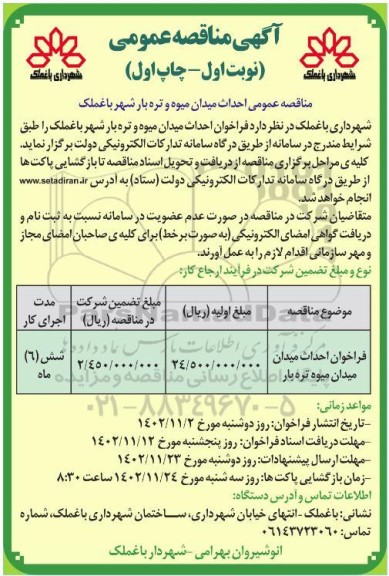 آگهی مناقصه عمومی
(نوبت اول – چاپ اول)
شهرداری باغملک
شهرداری باغملک
مناقصه عمومی احداث میدان میوه و تره بار شهر باغملک
شهرداری باغملک در نظر دارد فراخوان احداث میدان میوه و تره بار شهر باغملک را طبق
شرایط مندرج در سامانه از طریق درگاه سامانه تدارکات الکترونیکی دولت برگزار نماید.
کلیه ی مراحل برگزاری مناقصه از دریافت و تحویل اسناد مناقصه تا بازگشایی پاکت ها
از طریق درگاه سامانه تدارکات الکترونیکی دولت (ستاد) به آدرس www.setadiran.ir
انجام خواهد شد.
متقاضیان شرکت در مناقصه در صورت عدم عضویت در سامانه نسبت به ثبت نام و
دریافت گواهی امضای الکترونیکی (به صورت برخط) برای کلیه ی صاحبان امضای مجاز
و مهر سازمانی اقدام لازم را به عمل آورند.
نوع و مبلغ تضمین شرکت در فرآیند ارجاع کار:
موضوع مناقصه مبلغ اولیه (ریال) مبلغ تضمین شرکت در مناقصه (ریال) مدت اجرای کار
فراخوان احداث میدان میدان میوه تره بار ۲۴/۵۰۰/۰۰۰/۰۰۰ ۲/۴۵۰/۰۰۰/۰۰۰ شش (۶) ماه
مواعد زمانی:
-تاریخ انتشار فراخوان: روز دوشنبه مورخ ۱۴۰۲/۱۱/۲
-مهلت دریافت اسناد فراخوان: روز پنجشنبه مورخ ۱۴۰۲/۱۱/۱۲
-مهلت ارسال پیشنهادات: روز دوشنبه مورخ ۱۴۰۲/۱۱/۲۳
-زمان بازگشایی پاکت ها: روز سه شنبه مورخ ۱۴۰۲/۱۱/۲۴ ساعت ۸:۳۰
اطلاعات تماس و آدرس دستگاه:
نشانی: باغملک - انتهای خیابان شهرداری، ساختمان شهرداری باغملک، شماره
تماس: ۰۶۱۴۳۷۲۳۰۶۰
انوشیروان بهرامی - شهردار باغملک
۰۲۱-۸۸۳۴۹۶۷۰-۵